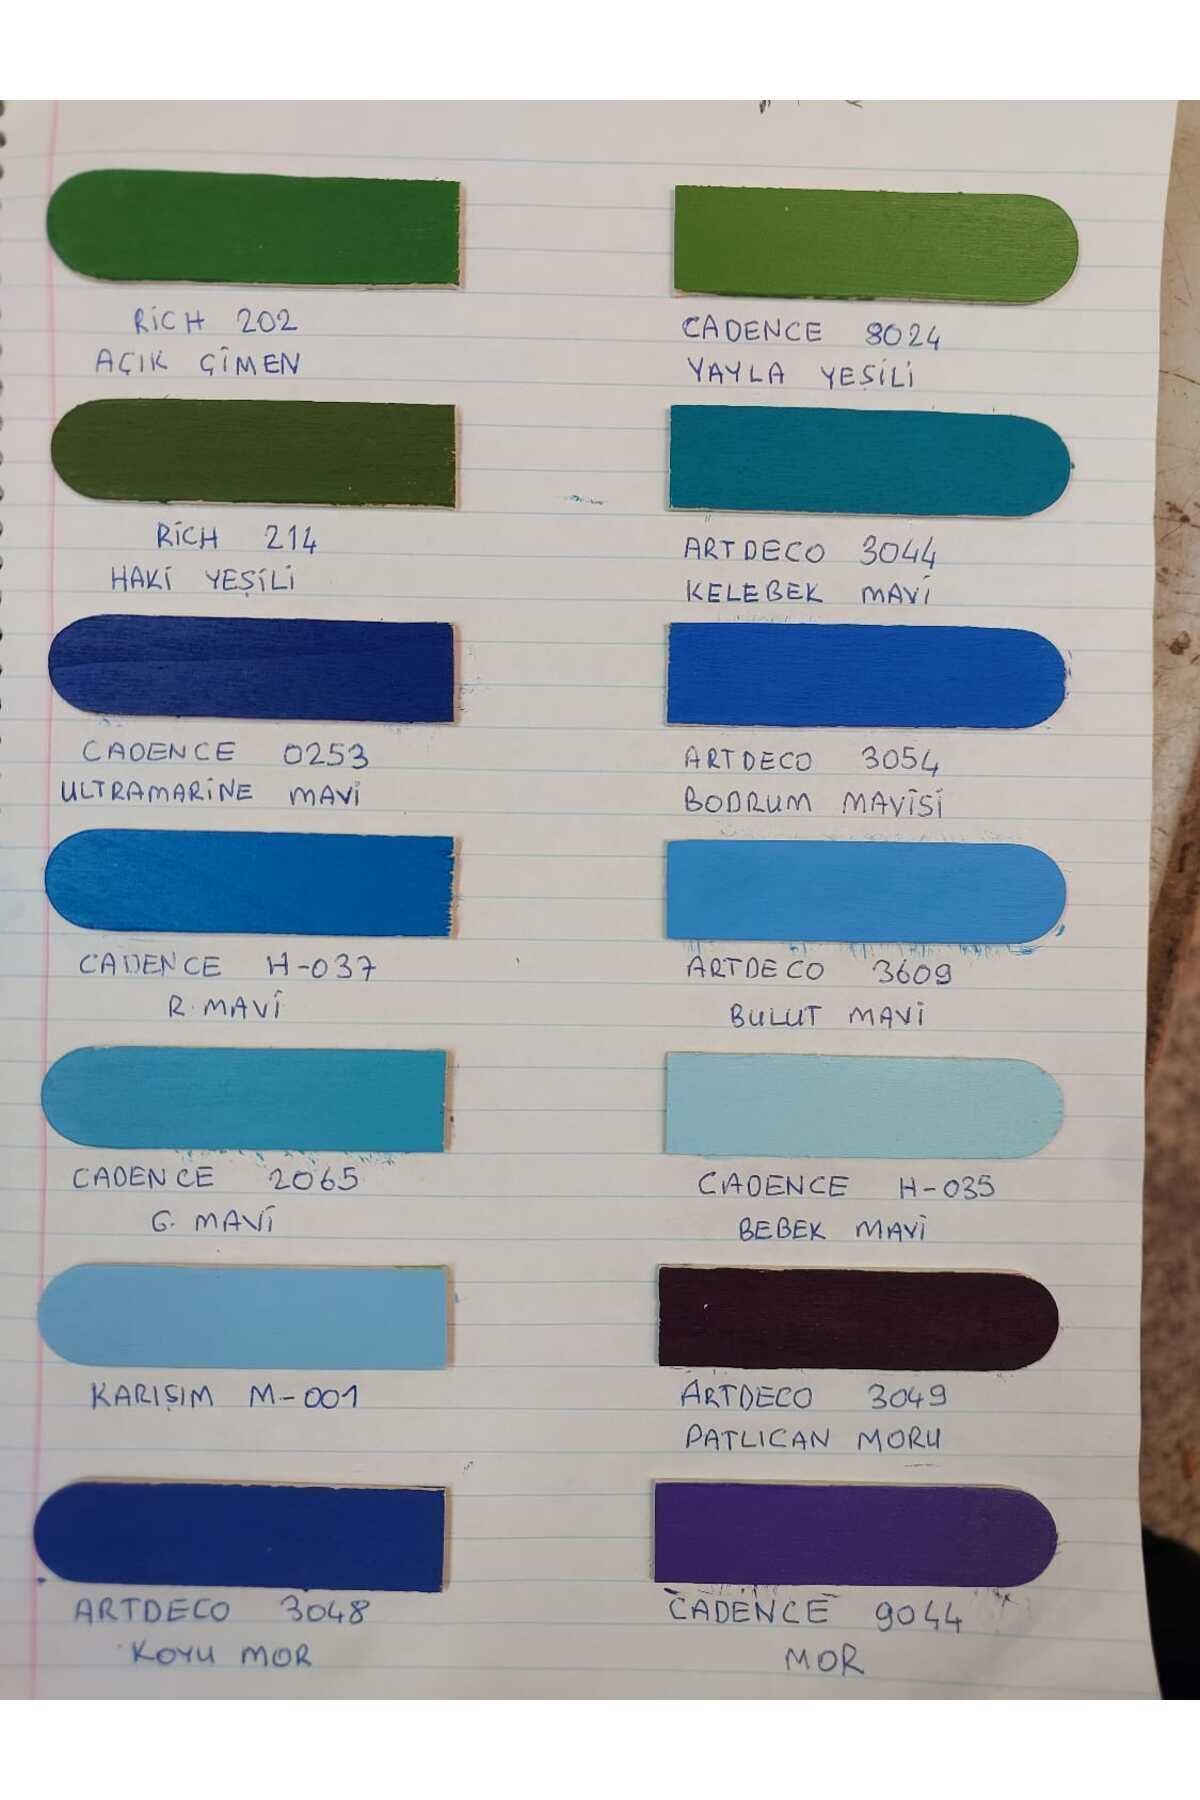 RiCH 202
AÇIK ÇİMEN
CADENCE 8024
YAYLA YEŞİLİ
RiCH 214
HAKİ YEŞİLİ
ARTDECO 3044
KELEBEK MAVİ
CADENCE 0253
ULTRAMARİNE MAVİ
ARTDECO 3054
BODRUM MAVİSİ
CADENCE H-037
R. MAVİ
ARTDECO 3609
BULUT MAVİ
CADENCE 2065
G. MAVİ
CADENCE H-035
BEBEK MAVİ
KARIŞIM M-001
ARTDECO 3049
PATLICAN MORU
ARTDECO 3048
KOYU MOR
CADENCE 9044
MOR